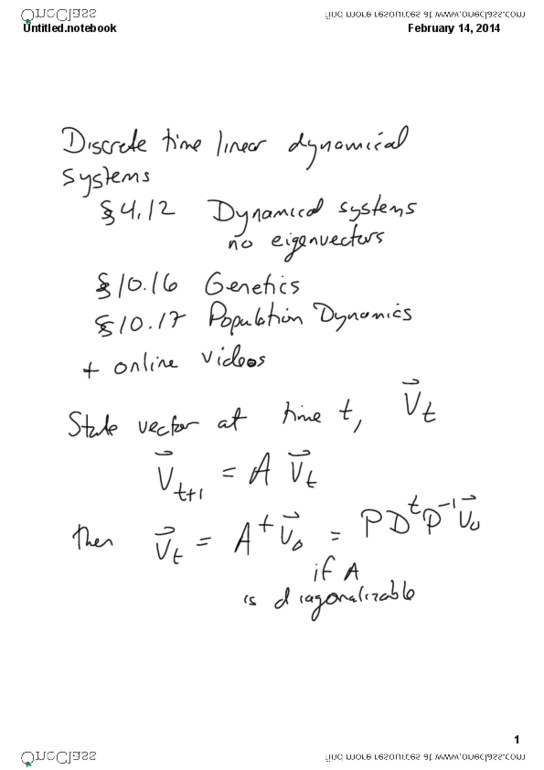 OneClass
find more resources at www.oneclass.com
Untitled.notebook
February 14, 2014
Discrete time linear dynamical
systems
§4.12 Dynamical systems
no eigenvectors
§10.16 Genetics
§10.17 Population Dynamics
+ online videos
State vector at time t, V⃗_t
V⃗_{t+1} = A V⃗_t
then V⃗_t = A^t V⃗_0 = PD^tP^{-1}V⃗_0
if A
is diagonalizable
1
OneClass
find more resources at www.oneclass.com